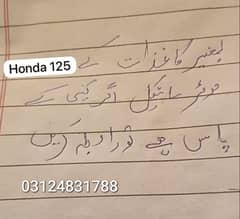 بغیر کاغذات کے
Honda 125
موٹر سائیکل اگر کسی کے
پاس ہے تو رابطہ کریں
03124831788